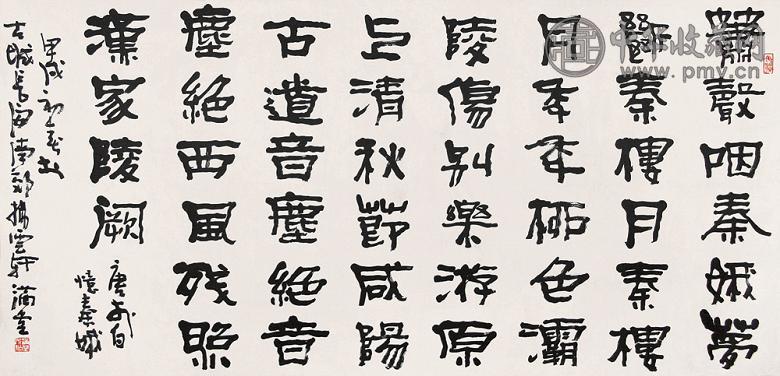 簫聲咽秦娥夢
斷秦樓月秦樓
月年年柳色灞
陵傷別樂游原
上清秋節咸陽
古道音塵絕音
塵絕西風残照
漢家陵闕
唐李白
憶秦娥
甲戌初
古城長南郊雲軒
中华收藏网
www.pmv.cn